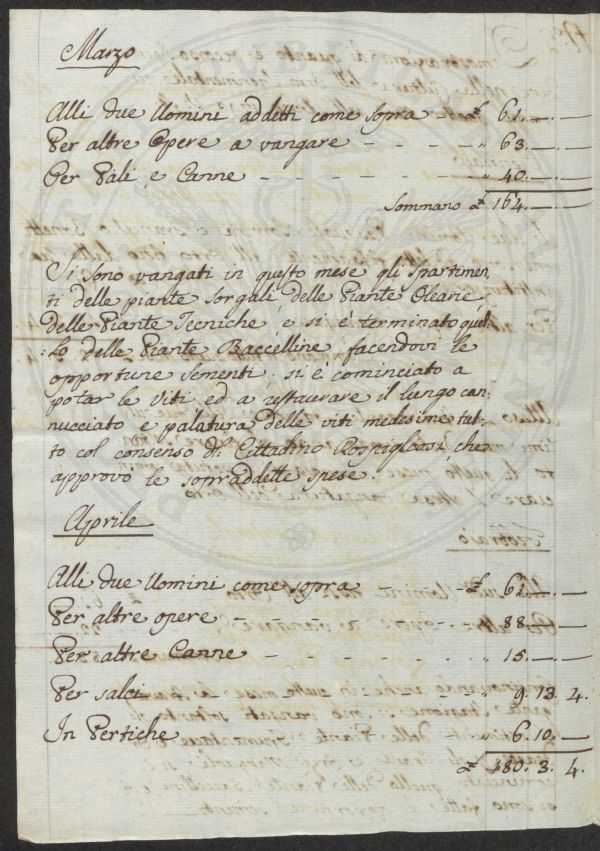 Marzo
Alli due Uomini addetti come sopra - £ 61. — . —
Per altre Opere a vangare - - - - - " 63. — . —
Per Pali e Canne - - - - - - - " 40. — . —
Sommano £ 164. — . —
Si sono vangati in questo mese gli spartimen,
ti delle piante Sorgali delle Piante Olearie
delle Piante Tecniche e si è terminato quel,
:lo delle Piante Baccelline facendovi le
opportune sementi. si è cominciato a
potar le viti ed a restaurare il lungo can,
nucciato e palatura delle viti medesime tut,
to col consenso dl: Cittadino Rospigliosi che
approvò le sopraddette spese.
Aprile
Alli due Uomini come sopra - - - - £ 61. — . —
Per altre opere - - - - - - - " 88. — . —
Per altre Canne - - - - - - - " 15. — . —
Per salci - - - - - - - " 9. 13. 4.
In Pertiche - - - - - - - " 6. 10. —
£ 180. 3. 4.